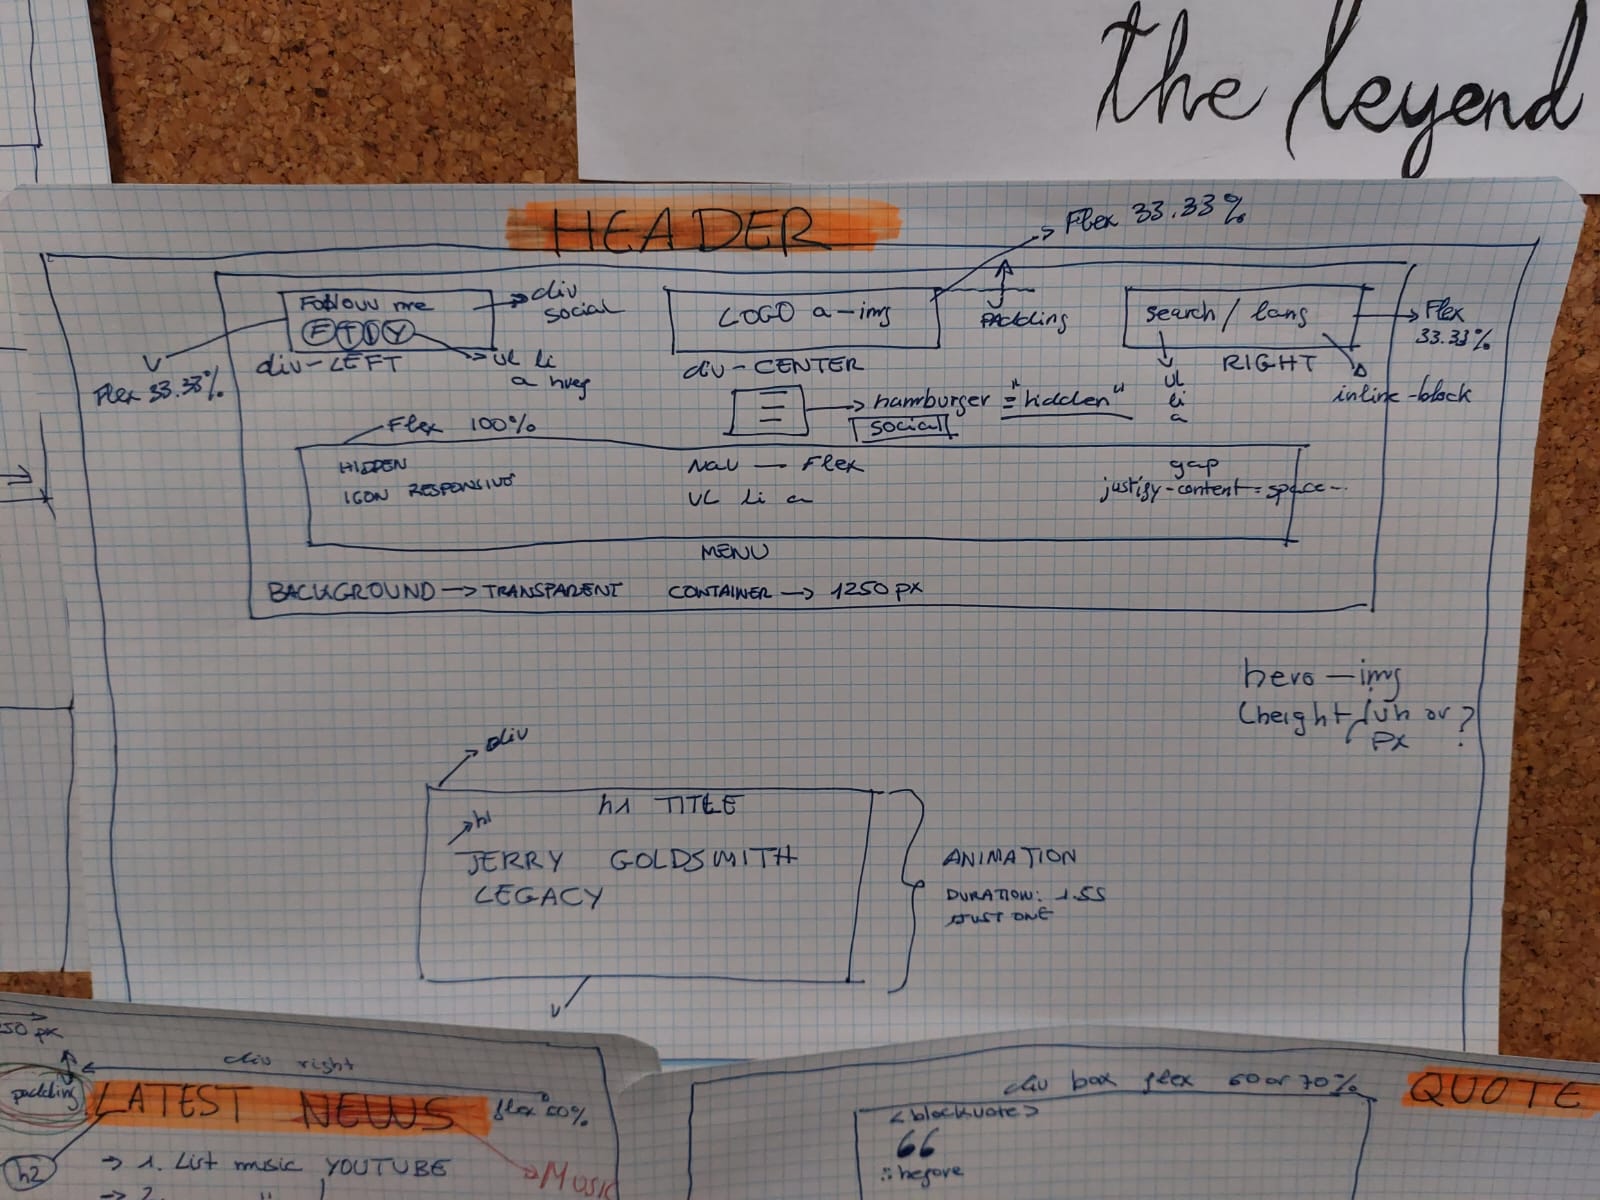 the leyend
HEADER
Flex 33.33%
Follow me
F T I Y
div social
LOGO a-img
PADDING
search / lang
Flex 33.33%
div-LEFT
ul li
a href
Flex 33.33%
div-CENTER
RIGHT
ul
li
a
inline-block
hamburger = "hidden"
social
Flex 100%
HIDDEN
ICON RESPONSIVE
Nav — Flex
UL li a
gap
justify-content = space-..
MENU
BACKGROUND → TRANSPARENT
CONTAINER → 1250 px
hero-img
(height / vh or px ?
div
h1 TITLE
h1
JERRY GOLDSMITH
LEGACY
ANIMATION
DURATION: 1.5S
JUST ONE
250 px
div right
padding
LATEST NEWS
flex 50%
h2
→ 1. List music YOUTUBE
→ 2.
MUSIC
div box flex 60 or 70%
QUOTE
<blockquote>
66
::before